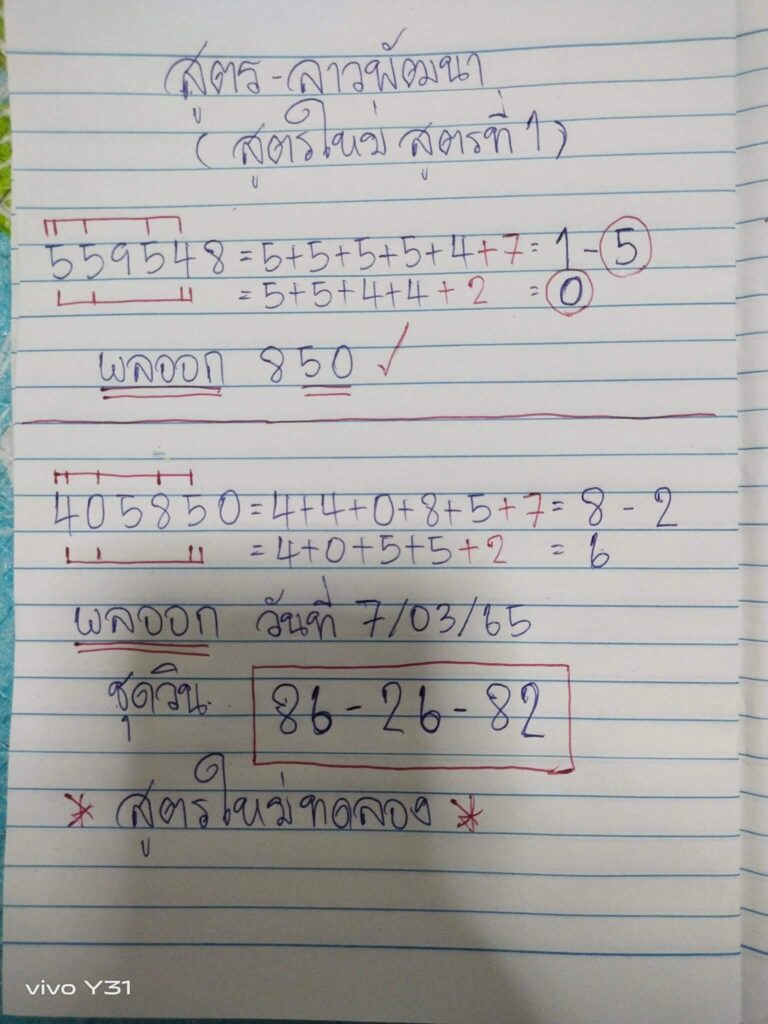 สูตร - ลาวพัฒนา
( สูตรใหม่ สูตรที่ 1 )
559548 = 5+5+5+5+4+7 = 1 - 5
= 5+5+4+4+2 = 0
ผลออก 850 ✓
405850 = 4+4+0+8+5+7 = 8 - 2
= 4+0+5+5+2 = 6
ผลออก วันที่ 7/03/65
ชุดวิน 86 - 26 - 82
* สูตรใหม่ทดลอง *
vivo Y31